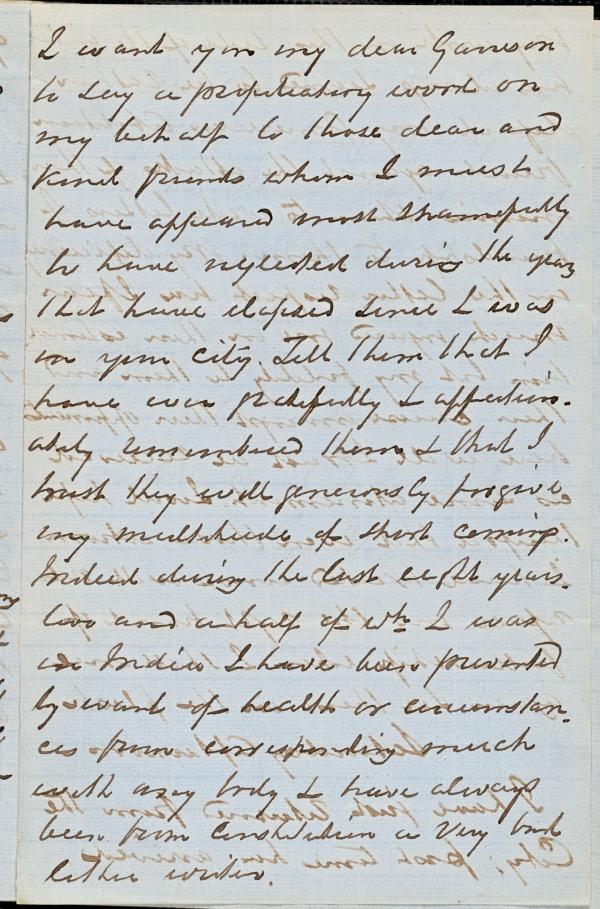 I want you my dear Garrison
to say a propitiatory word on
my behalf to those dear and
kind friends whom I must
have appeared most shamefully
to have neglected during the years
that have elapsed since I was
in your city. Tell them that I
have ever gratefully & affection-
ately remembered them & that I
trust they will generously forgive
my multitude of short comings.
Indeed during the last eight years,
two and a half of wh. I was
in India I have been prevented
by want of health or circumstan-
ces from corresponding much
with any body & have always
been from constitution a very bad
letter writer.